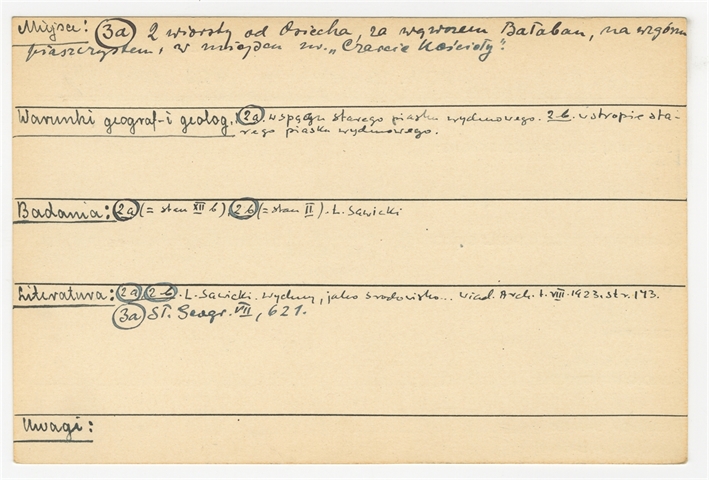 Miejsce: (3a) 2 wiorsty od Osiecka, za wąwozem Bałaban, na wzgórzu
piaszczystem, w miejscu zw. „Czarcie Kościoły".
Warunki geograf-i geolog. (2a). w spągu starego piasku wydmowego. 2b. w stropie sta-
rego piasku wydmowego.
Badania: (2a) (= stan XII b), (2b) (= stan II). L. Sawicki
Literatura: (2a) (2b). L. Sawicki. Wydmy, jako środowisko... Wiad. Arch. t. VIII. 1923. str. 173.
(3a) Sł. Geogr. VII, 621.
Uwagi: